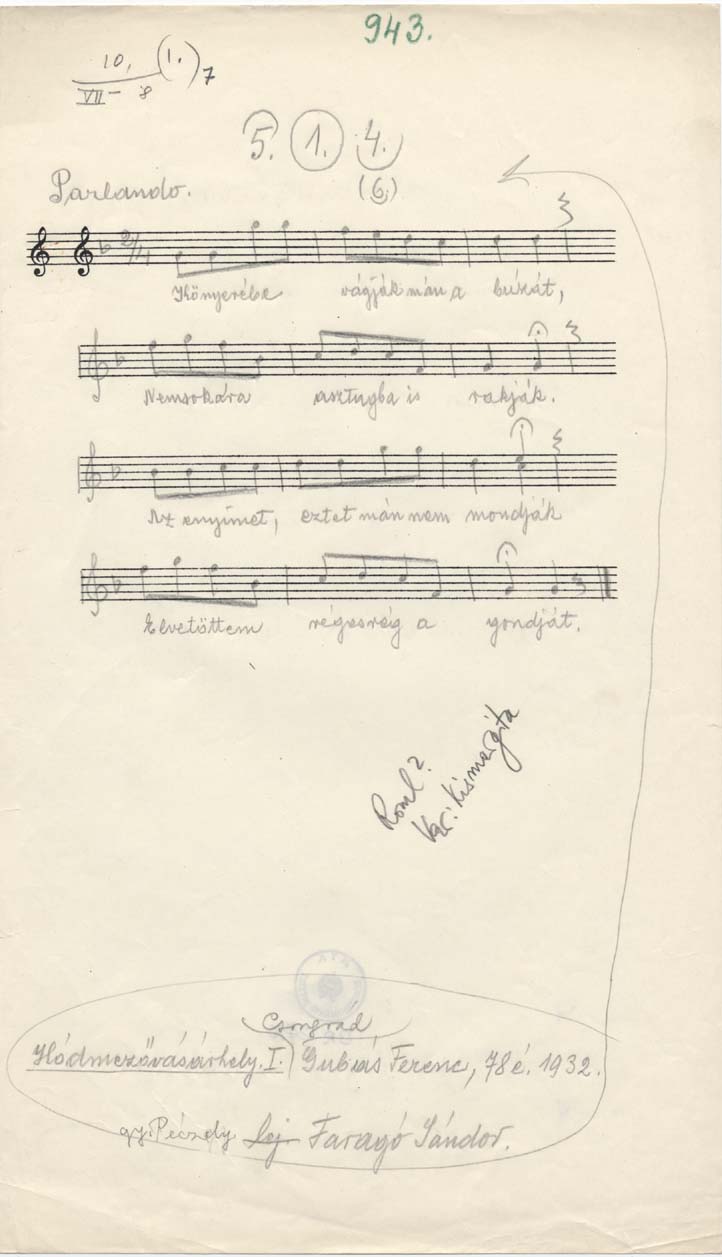 943.
10, (1.) 7
VII - 8
5. 1. 4.
(6)
Parlando.
2/4
Könyerébe vágják mán a búzát,
Nemsokára asztugba is rakják.
Az enyímet, eztet mán nem mondják
Elvetöttem régesrég a gondját.
Roml?
Var: Kismargita
Csongrád
Hódmezővásárhely. I. Gubás Ferenc, 78 é. 1932.
gy. Péczely Lej Faragó Sándor.